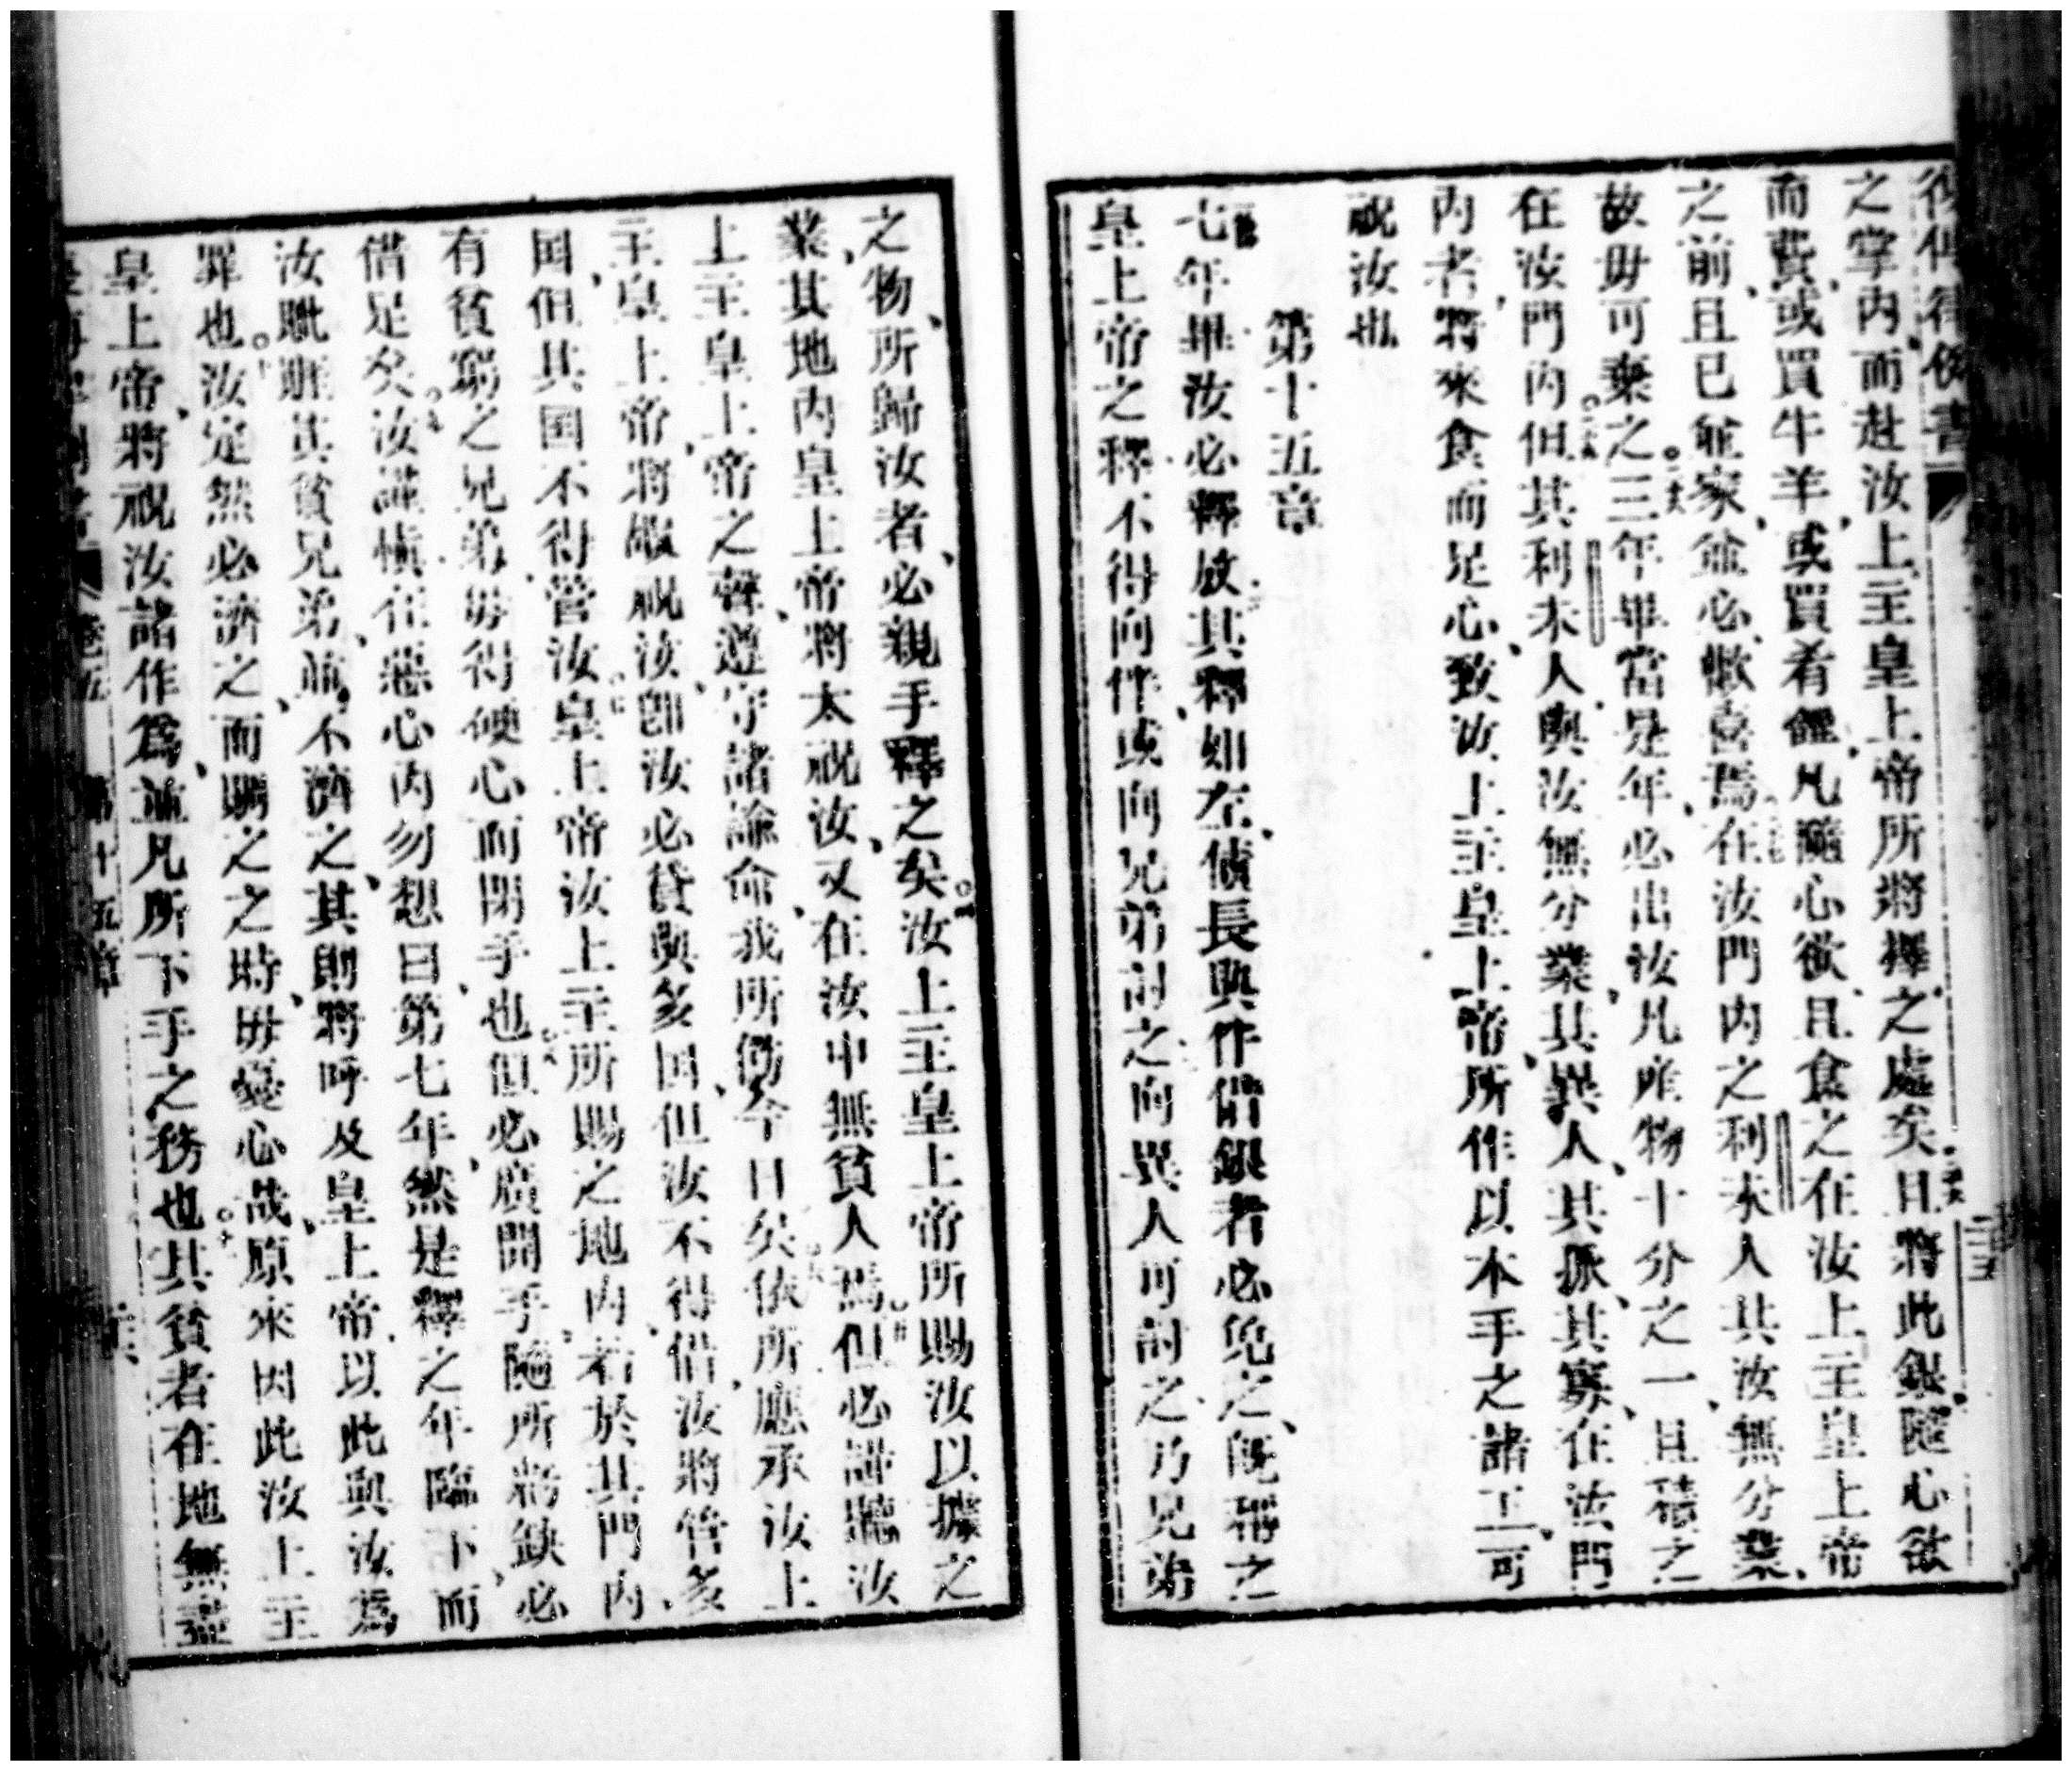 復傳律例書
之掌內而赴汝上主皇上帝所將擇之處矣且將此銀隨心欲
而費或買牛羊或買肴饌凡隨心欲且食之在汝上主皇上帝
之前且已並家並必歡喜焉在汝門內之利未人其汝無分業
故毋可棄之三年畢當是年必出汝凡産物十分之一且積之
在汝門內但其利未人與汝無分業其異人其孤其寡在汝門
內者將來食而足心致汝上主皇上帝所作以本手之諸工可
祝汝也
第十五章
七年畢汝必釋放其釋如左債長與伴借銀者必免之既稱之
皇上帝之釋不得向伴或向兄弟討之向異人可討之乃兄弟
之物所歸汝者必親手釋之矣汝上主皇上帝所賜汝以據之
業其地內皇上帝將太祝汝又在汝中無貧人焉但必謹聽汝
上主皇上帝之聲遵守諸諭命我所飭今日矣依所應承汝上
主皇上帝將嘏祝汝卽汝必貸與多国但汝不得借汝將管多
国但其国不得管汝皇上帝汝上主所賜之地內若於其門內
有貧窮之兄弟毋得硬心而閉手也但必廣開手隨所將缺必
借足矣汝謹愼在惡心內勿想曰第七年然是釋之年臨下而
汝眦睚其貧兄弟並不濟之其則將呼及皇上帝以此與汝爲
罪也汝定然必濟之而賙之之時毋憂心哉原來因此汝上主
皇上帝將祝汝諸作爲並凡所下手之務也其貧者在地無盡
卷五 第十五章